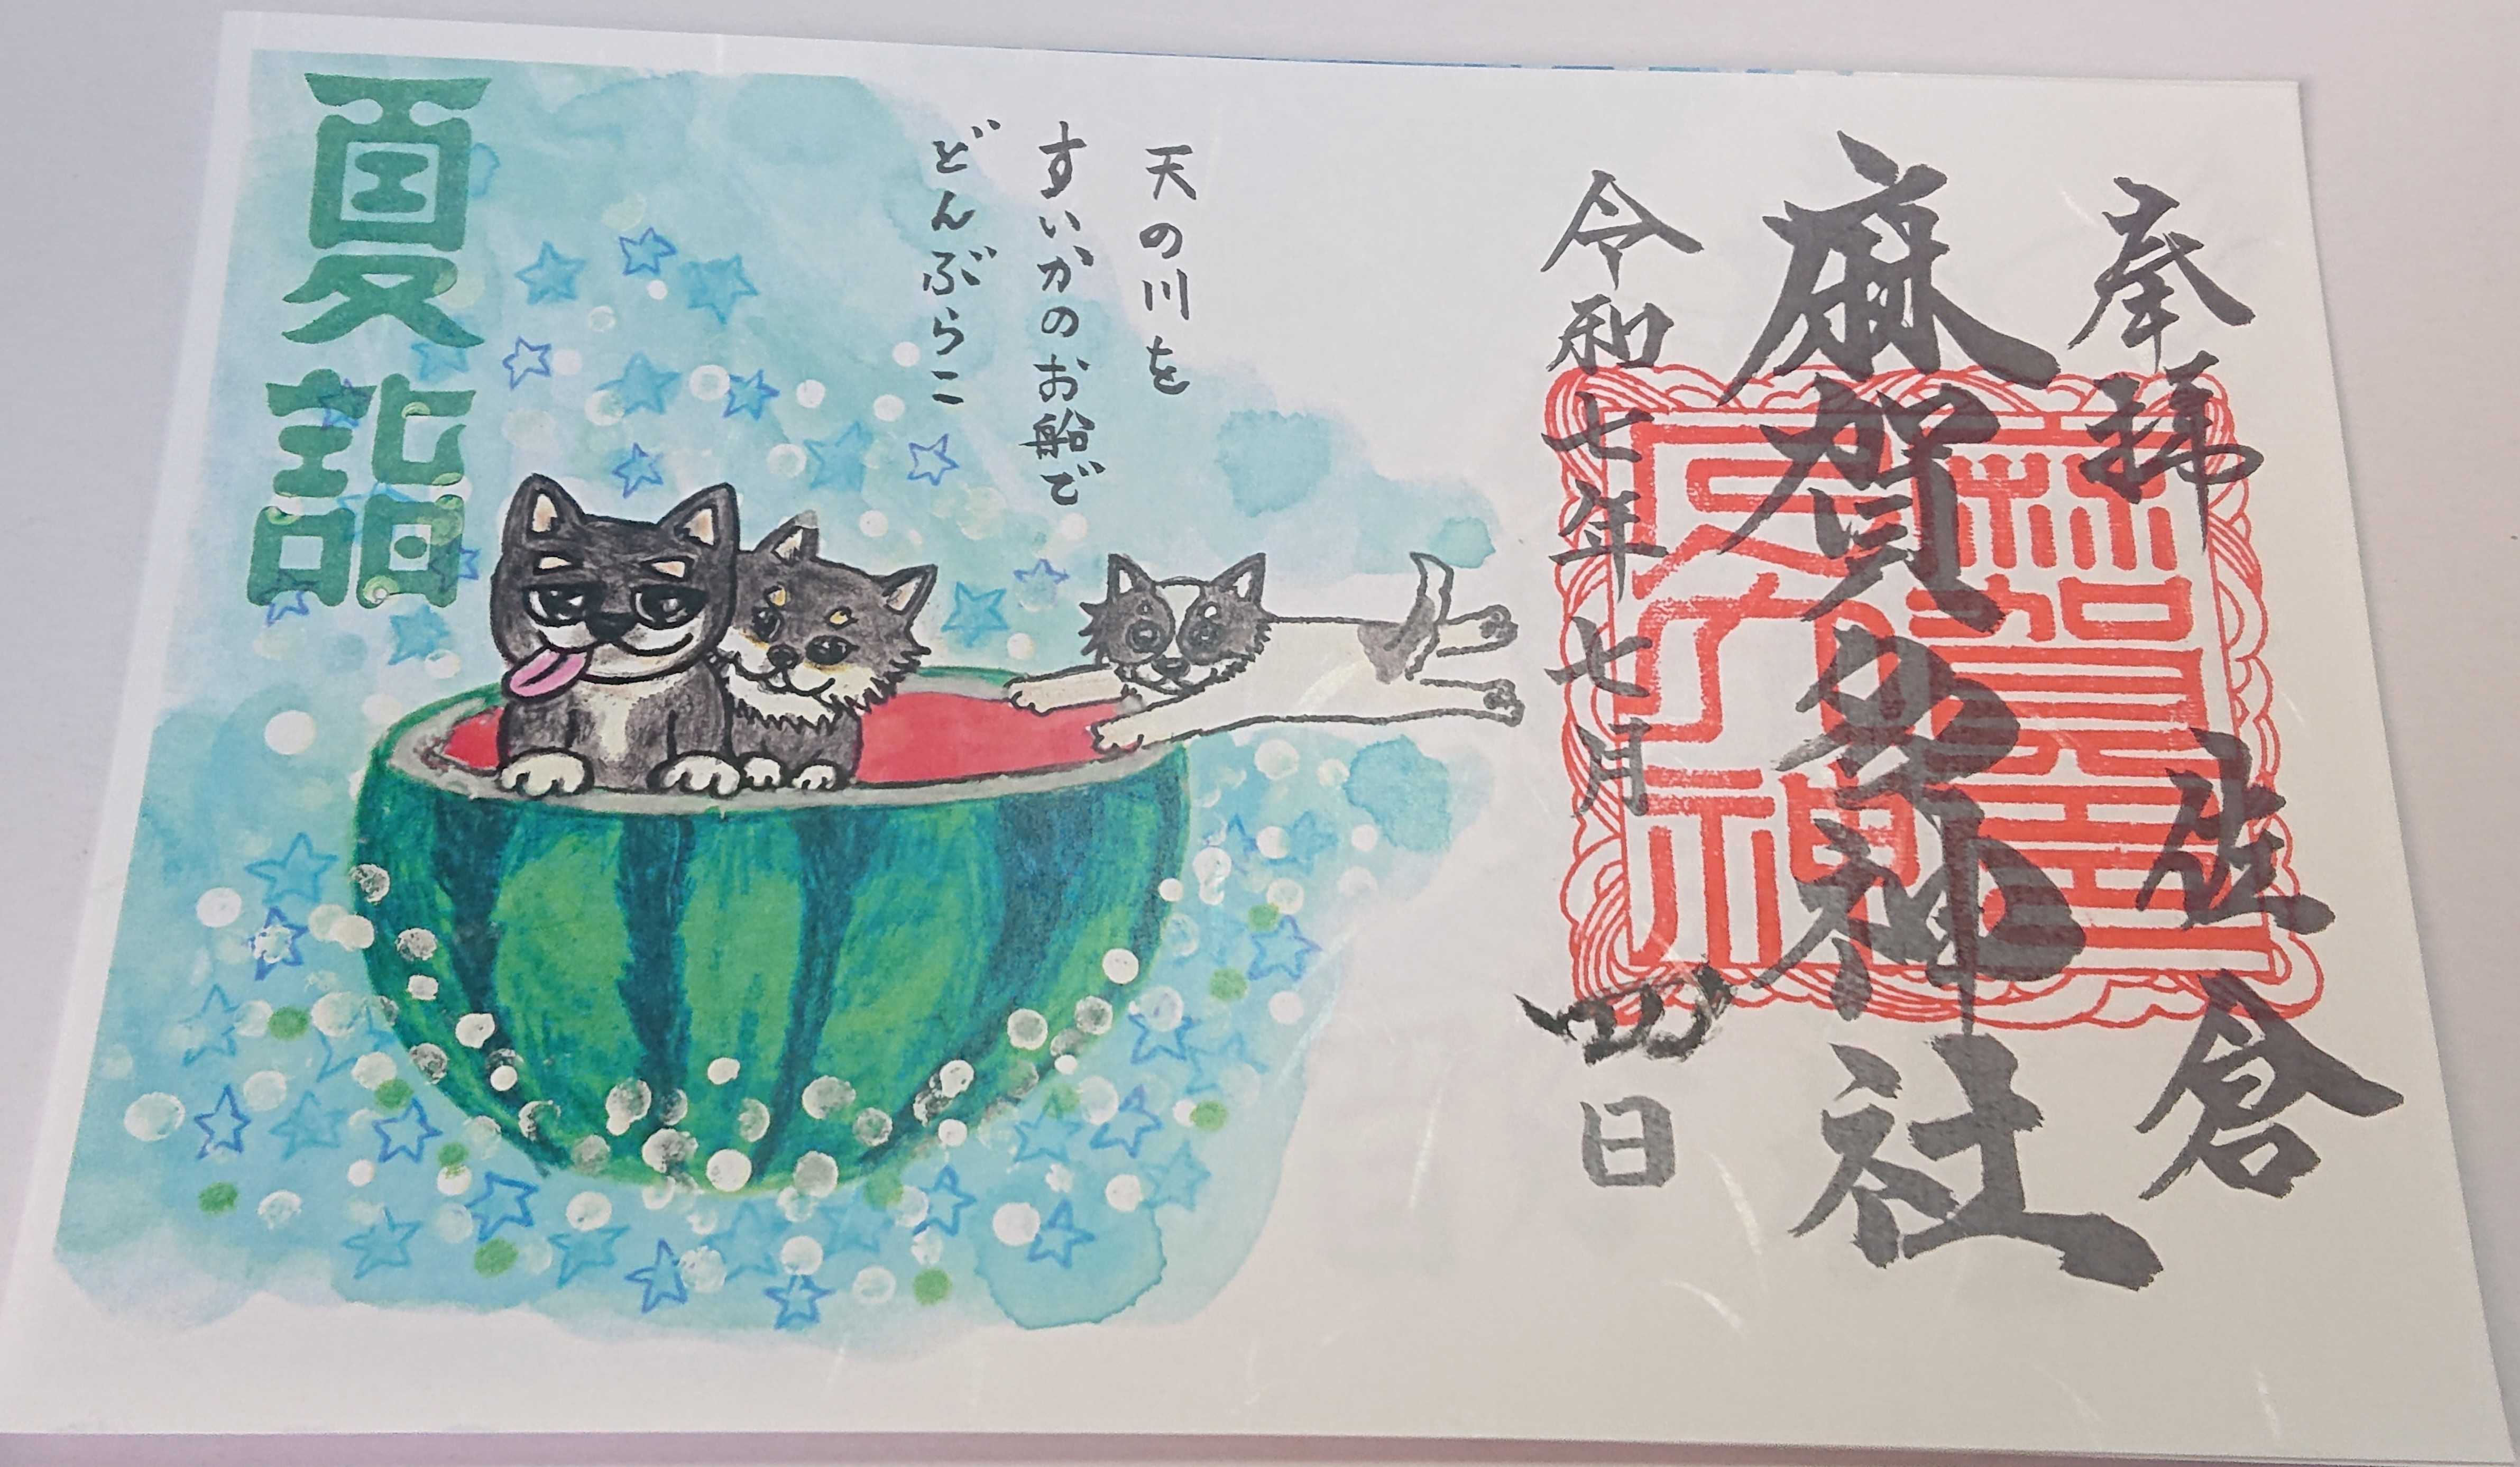 奉拝
佐倉
麻賀多神社
令和七年七月四日
天の川を
すいかのお船で
どんぶらこ
夏詣